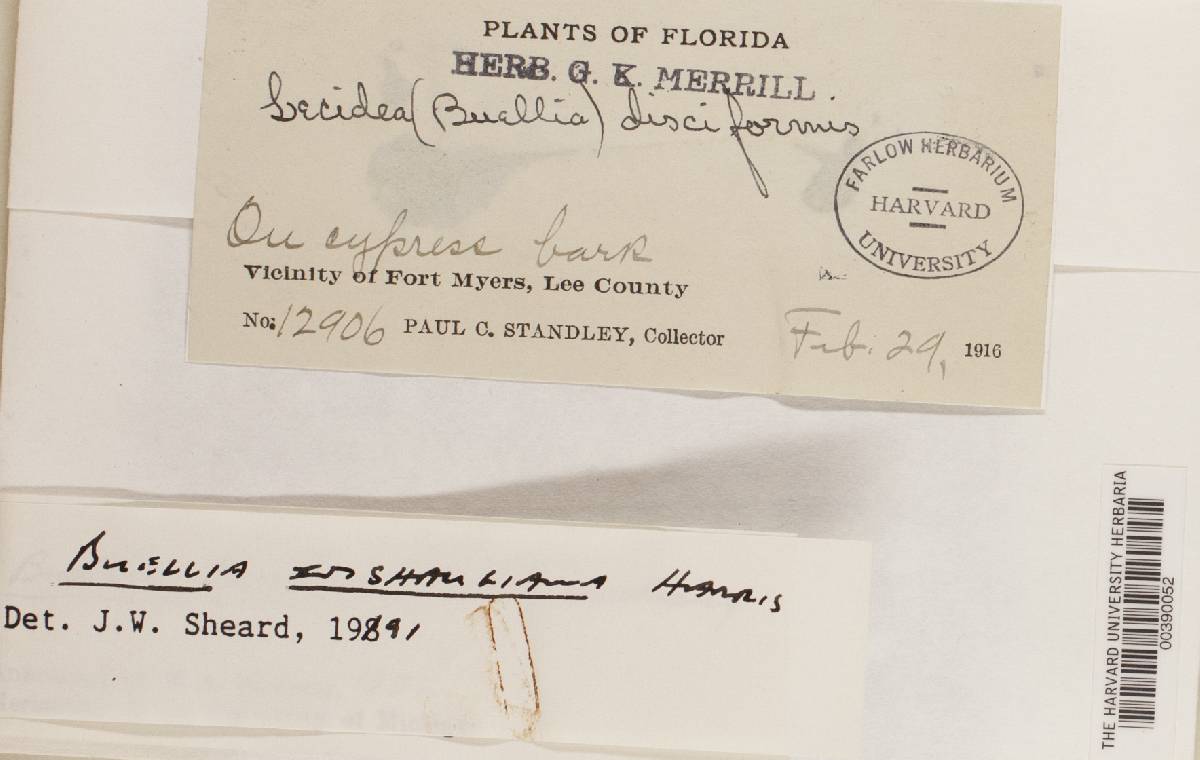 PLANTS OF FLORIDA
HERB. G. K. MERRILL.
Lecidea (Buellia) disciformis
FARLOW HERBARIUM
HARVARD
UNIVERSITY
On cypress bark
Vicinity of Fort Myers, Lee County
No: 12906 PAUL C. STANDLEY, Collector Feb. 29, 1916
BUELLIA HARRIS
Det. J.W. Sheard, 1991
THE HARVARD UNIVERSITY HERBARIA
00390052